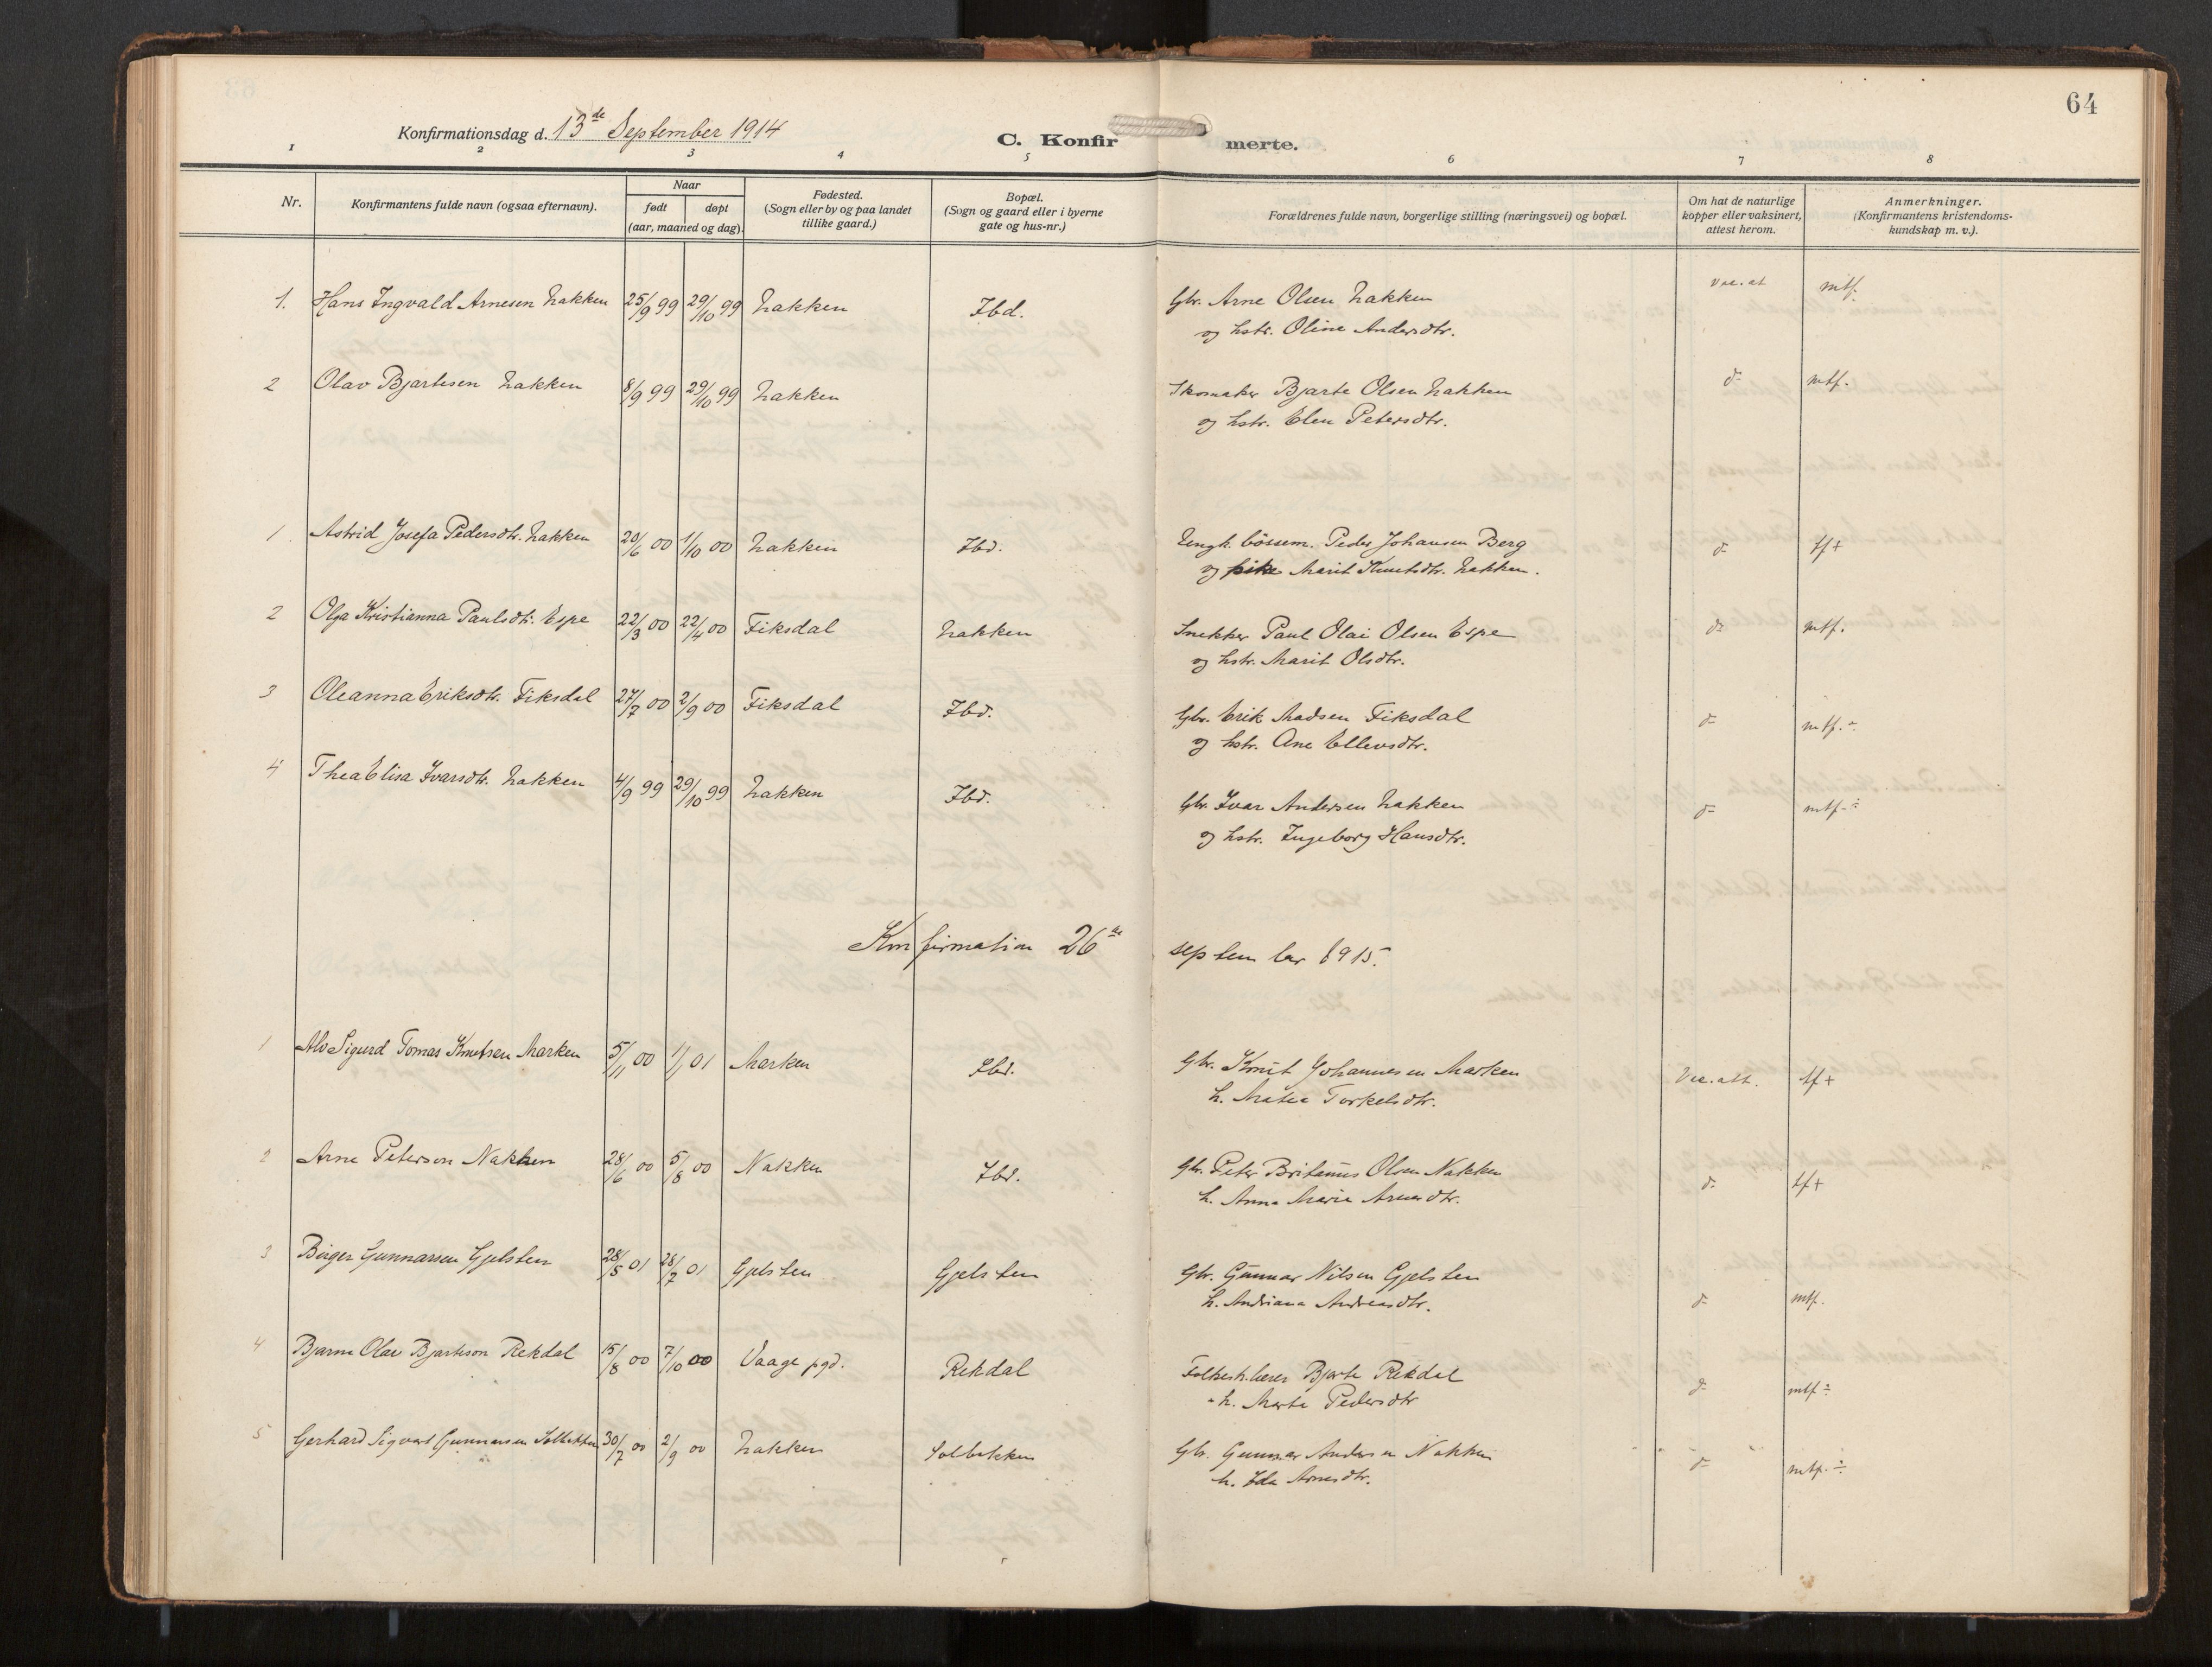 64
Konfirmationsdag d. 13de September 1914
C. Konfirmerte.
1 2 3 4 5 6 7 8
Nr.
Konfirmantens fulde navn (ogsaa efternavn).
Naar
født
døpt
(aar, maaned og dag).
Fødested.
(Sogn eller by og paa landet
tillike gaard.)
Bopæl.
(Sogn og gaard eller i byerne
gate og hus-nr.)
Forældrenes fulde navn, borgerlige stilling (næringsvei) og bopæl.
Om hat de naturlige
kopper eller vaksinert,
attest herom.
Anmerkninger.
(Konfirmantens kristendoms-
kundskap m. v.).
1. Hans Ingvald Arnesen Nakken 25/9 99 29/10 99 Nakken Ibd. Gbr. Arne Olsen Nakken vac. at mtf.
og hstr. Oline Andersdtr.
2 Olav Bjartesen Nakken 8/9 99 29/10 99 Nakken Skomaker Bjarte Olsen Nakken d- mtf.
og hstr. Elen Petersdtr.
1. Astrid Josefa Pedersdtr. Nakken 20/6 00 1/10 00 Nakken Ibd. Ungk. bössem. Peder Johansen Berg d- tf+
og pike Marit Knutsdtr. Nakken.
2 Olga Kristianna Paulsdtr. Espe 22/3 00 22/4 00 Fiksdal Nakken Snekker Paul Olai Olsen Espe d- mtf.
og hstr. Marit Olsdtr.
3 Oleanna Eriksdtr. Fiksdal 27/7 00 2/9 00 Fiksdal Ibd. Gbr. Erik Madsen Fiksdal d- mtf.÷
og hstr. Ane Ellevsdtr.
4 Thea Elisa Ivarsdtr. Nakken 4/9 99 29/10 99 Nakken Ibd. Gbr. Ivar Andersen Nakken d- mtf.÷
og hstr. Ingeborg Hansdtr.
Konfirmation 26de september 1915.
1 Alv Sigurd Tomas Knutsen Marken 5/11 00 1/1 01 Marken Ibd. Gbr. Knut Johannesen Marken Vac. att. tf+
h. Matea Torkelsdtr.
2 Arne Peterson Nakken 28/6 00 5/8 00 Nakken Ibd. Gbr. Peter Britanus Olsen Nakken d- tf+
h. Anna Marie Arnesdtr.
3 Birger Gunnarsen Gjelsten 28/5 01 28/7 01 Gjelsten Gjelsten Gbr. Gunnar Nilsen Gjelsten d- mtf.
h. Andriana Andreasdtr.
4 Bjarne Olav Bjarteson Rekdal 15/8 00 7/10 00 Vaage pgd. Rekdal Folkesk.lærer Bjarte Rekdal d- mtf÷
h. Marta Pedersdtr
5 Gerhard Sigvart Gunnarsen Solbakken 30/7 00 2/9 00 Nakken Solbakken Gbr. Gunnar Andersen Nakken d- mtf.÷
h. Ida Arnesdtr.